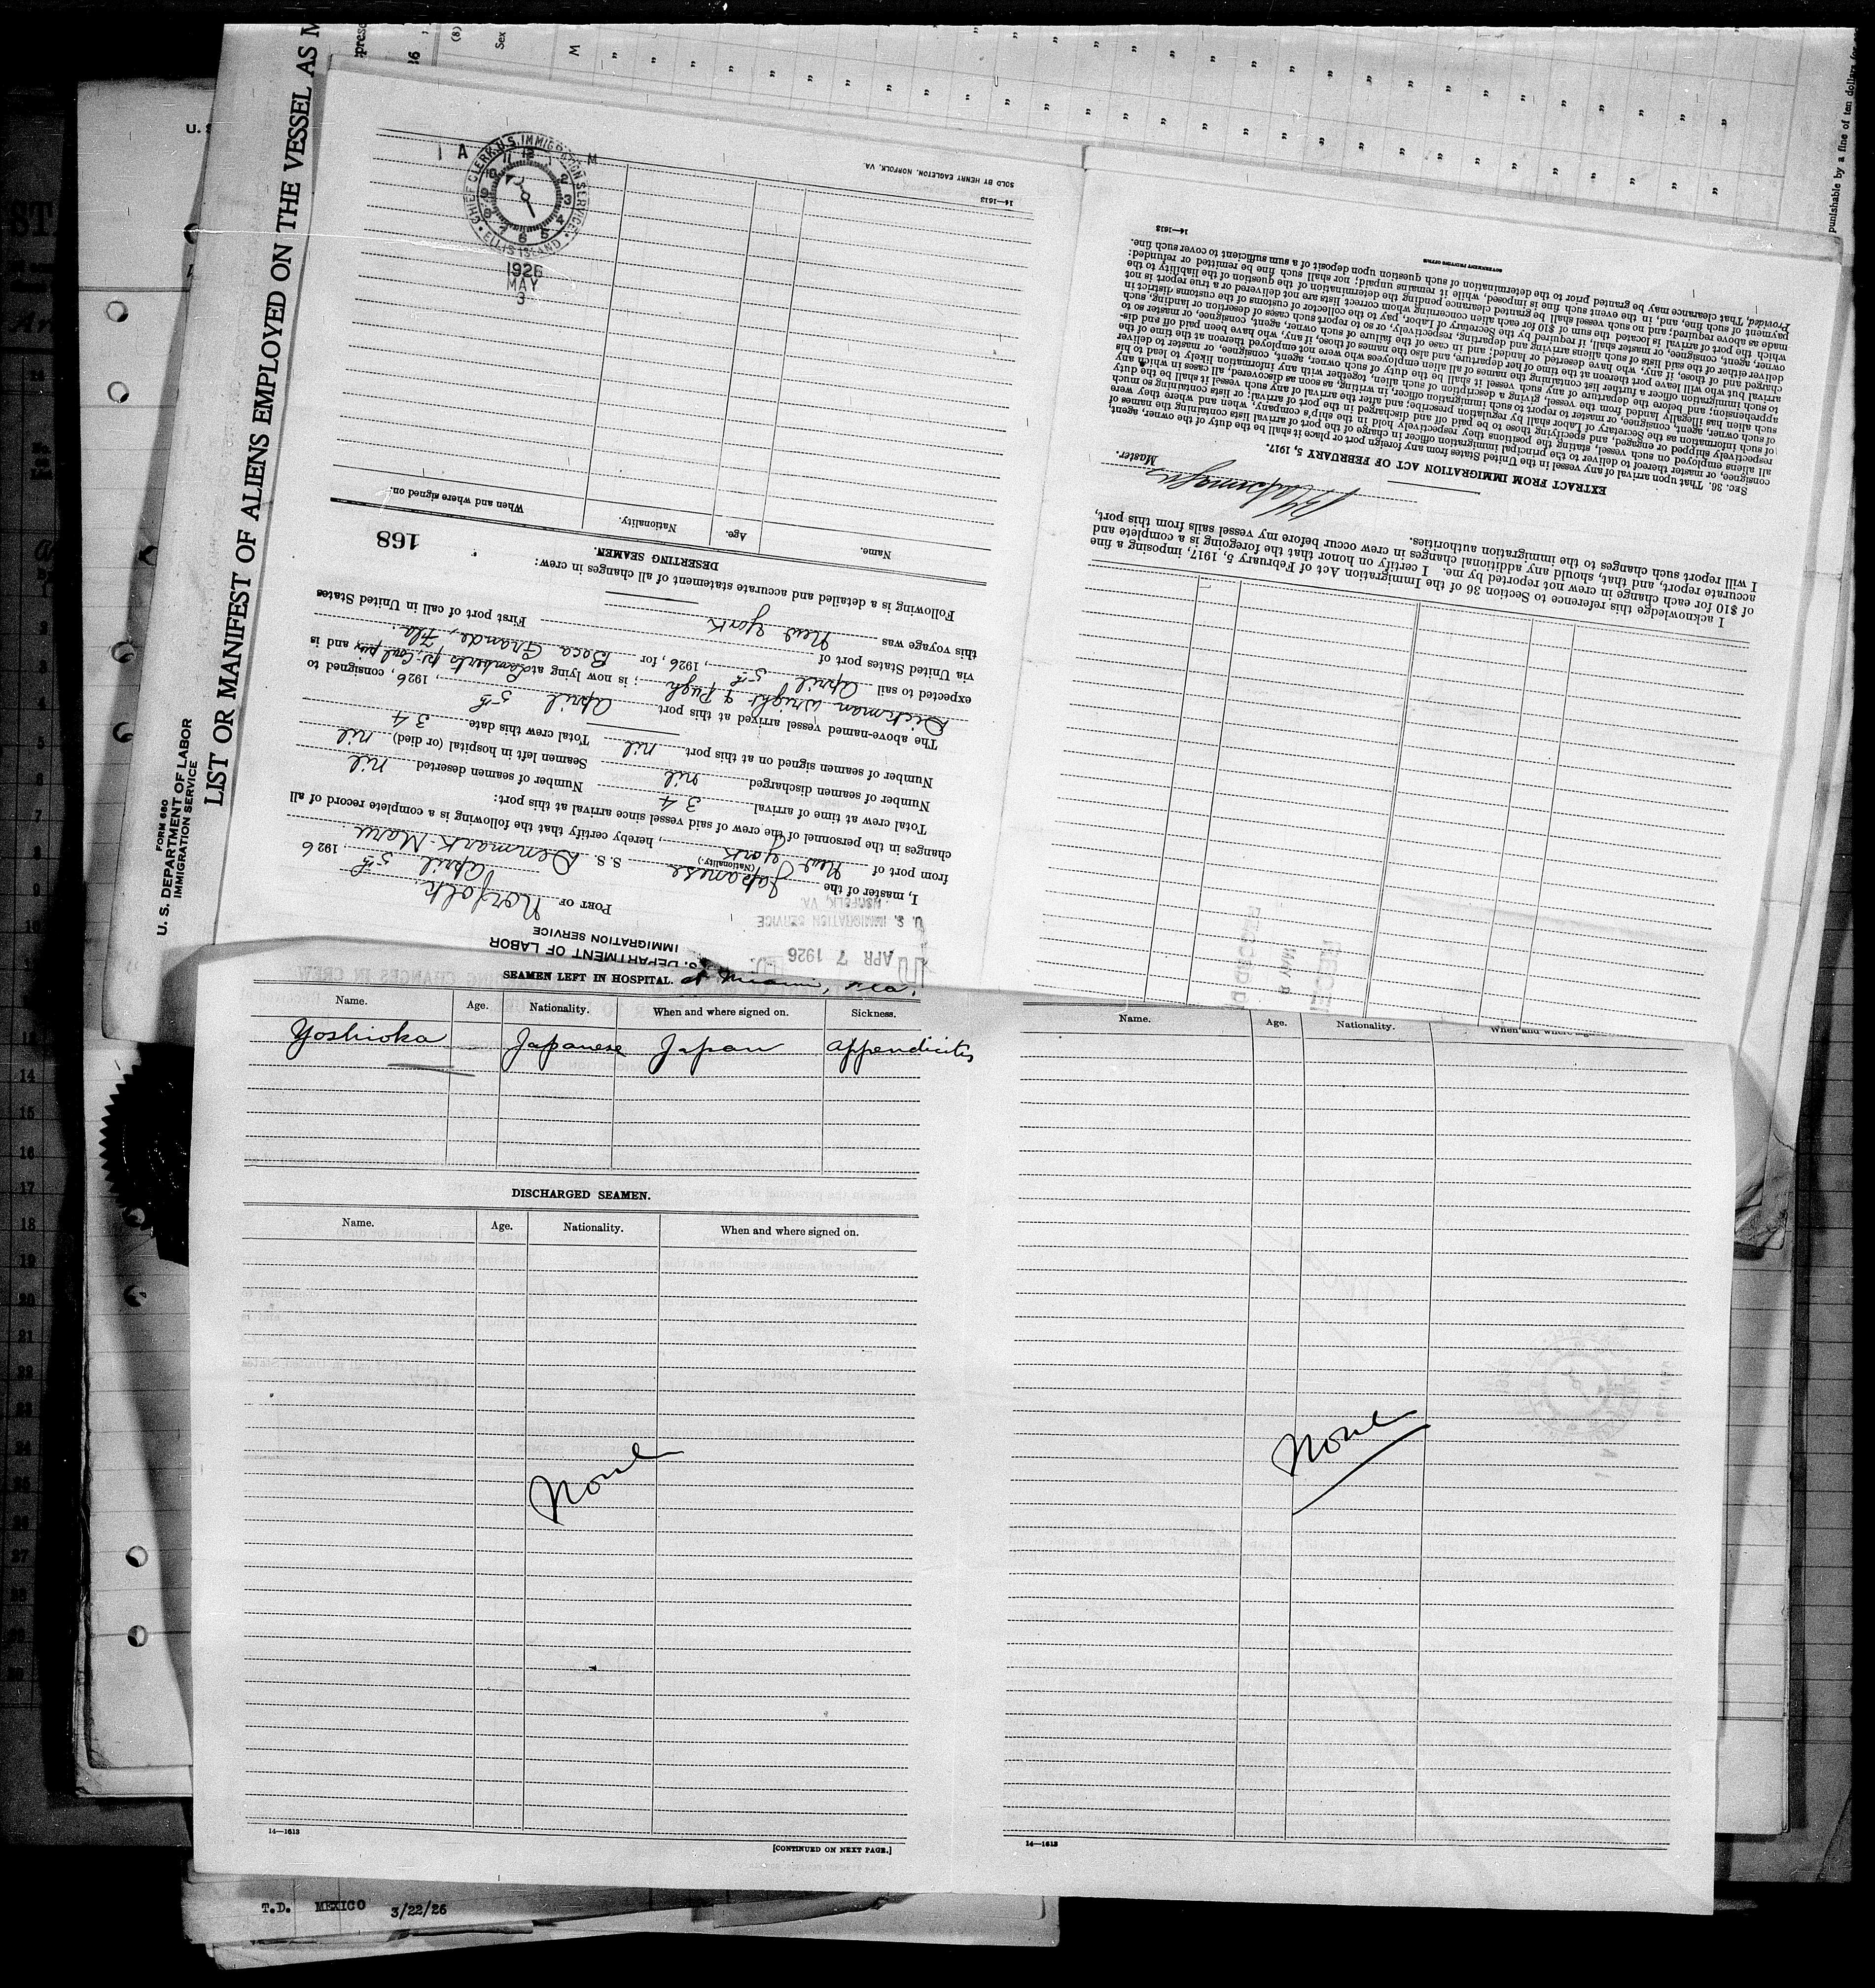 FORM 680
U. S. DEPARTMENT OF LABOR
IMMIGRATION SERVICE
LIST OR MANIFEST OF ALIENS EMPLOYED ON THE VESSEL AS M
(8)
Sex
M
punishable by a fine of ten dollars
U. S. DEPARTMENT OF LABOR
IMMIGRATION SERVICE
APR 7 1926
U. S. IMMIGRATION SERVICE
NORFOLK, VA.
PORT OF Norfolk.
April 5th, 1926
I, master of the Japanese S. S. Denmark Maru
(Nationality.)
from port of New York, hereby certify that the following is a complete record of all
changes in the personnel of the crew of said vessel since arrival at this port:
Total crew at time of arrival 34 Number of seamen deserted nil
Number of seamen discharged nil Seamen left in hospital (or died) nil
Number of seamen signed on at this port nil Total crew this date 34
The above-named vessel arrived at this port April 5th, 1926, consigned to
Dickman Wright & Pugh; is now lying at Lamberts Pt. Coal pier, and is
expected to sail April 5th, 1926, for Boca Grande, Fla.
via United States port of First port of call in United States
this voyage was New York
Following is a detailed and accurate statement of all changes in crew:
DESERTING SEAMEN.
168
Name.
Age.
Nationality.
When and where signed on:
14—1613
SOLD BY HENRY EAGLETON, NORFOLK, VA.
A M
CHIEF CLERK U.S. IMMIGRATION SERVICE
ELLIS ISLAND
1926
MAY
3
I acknowledge this reference to Section 36 of the Immigration Act of February 5, 1917, imposing a fine
of $10 for each change in crew not reported by me. I certify on honor that the foregoing is a complete and
accurate report, and that, should any additional changes in crew occur before my vessel sails from this port,
I will report such changes to the immigration authorities.
Master.
EXTRACT FROM IMMIGRATION ACT OF FEBRUARY 5, 1917.
SEC. 36. That upon arrival of any vessel in the United States from any foreign port or place it shall be the duty of the owner, agent,
consignee, or master thereof to deliver to the principal immigration officer in charge of the port of arrival lists containing the names of
all aliens employed on such vessel, stating the positions they respectively hold in the ship's company, when and where they were
respectively shipped or engaged, and specifying those to be paid off and discharged in the port of arrival; or lists containing so much
of such information as the Secretary of Labor shall by regulation prescribe; and after the arrival of any such vessel it shall be the duty
of such owner, agent, consignee, or master to report to such immigration officer, in writing, as soon as discovered, all cases in which any
such alien has illegally landed from the vessel, giving a description of such alien, together with any information likely to lead to his
apprehension; and before the departure of any such vessel it shall be the duty of such owner, agent, consignee, or master to deliver
to such immigration officer a further list containing the names of all alien employees who were not employed thereon at the time of the
arrival but who will leave port thereon at the time of her departure, and also the names of those, if any, who have been paid off and dis-
charged and of those, if any, who have deserted or landed; and in case of the failure of such owner, agent, consignee, or master so to
deliver either of the said lists of such aliens arriving and departing, respectively, or so to report such cases of desertion or landing, such
owner, agent, consignee, or master shall, if required by the Secretary of Labor, pay to the collector of customs of the customs district in
which the port of arrival is located the sum of $10 for each alien concerning whom correct lists are not delivered or a true report is not
made as above required; and no such vessel shall be granted clearance pending the determination of the question of the liability to the
payment of such fine, and, in the event such fine is imposed, while it remains unpaid; nor shall such fine be remitted or refunded:
Provided, That clearance may be granted prior to the determination of such question upon deposit of a sum sufficient to cover such fine.
GOVERNMENT PRINTING OFFICE
14—1613
SEAMEN LEFT IN HOSPITAL. at Miami, Fla.
Name.
Age.
Nationality.
When and where signed on.
Sickness.
Yoshioka Japanese Japan appendicitis
DISCHARGED SEAMEN.
Name.
Age.
Nationality.
When and where signed on.
None
14—1613
[CONTINUED ON NEXT PAGE.]
Name.
Age.
Nationality.
When and where signed
None
14—1613
T.D. MEXICO 3/22/26